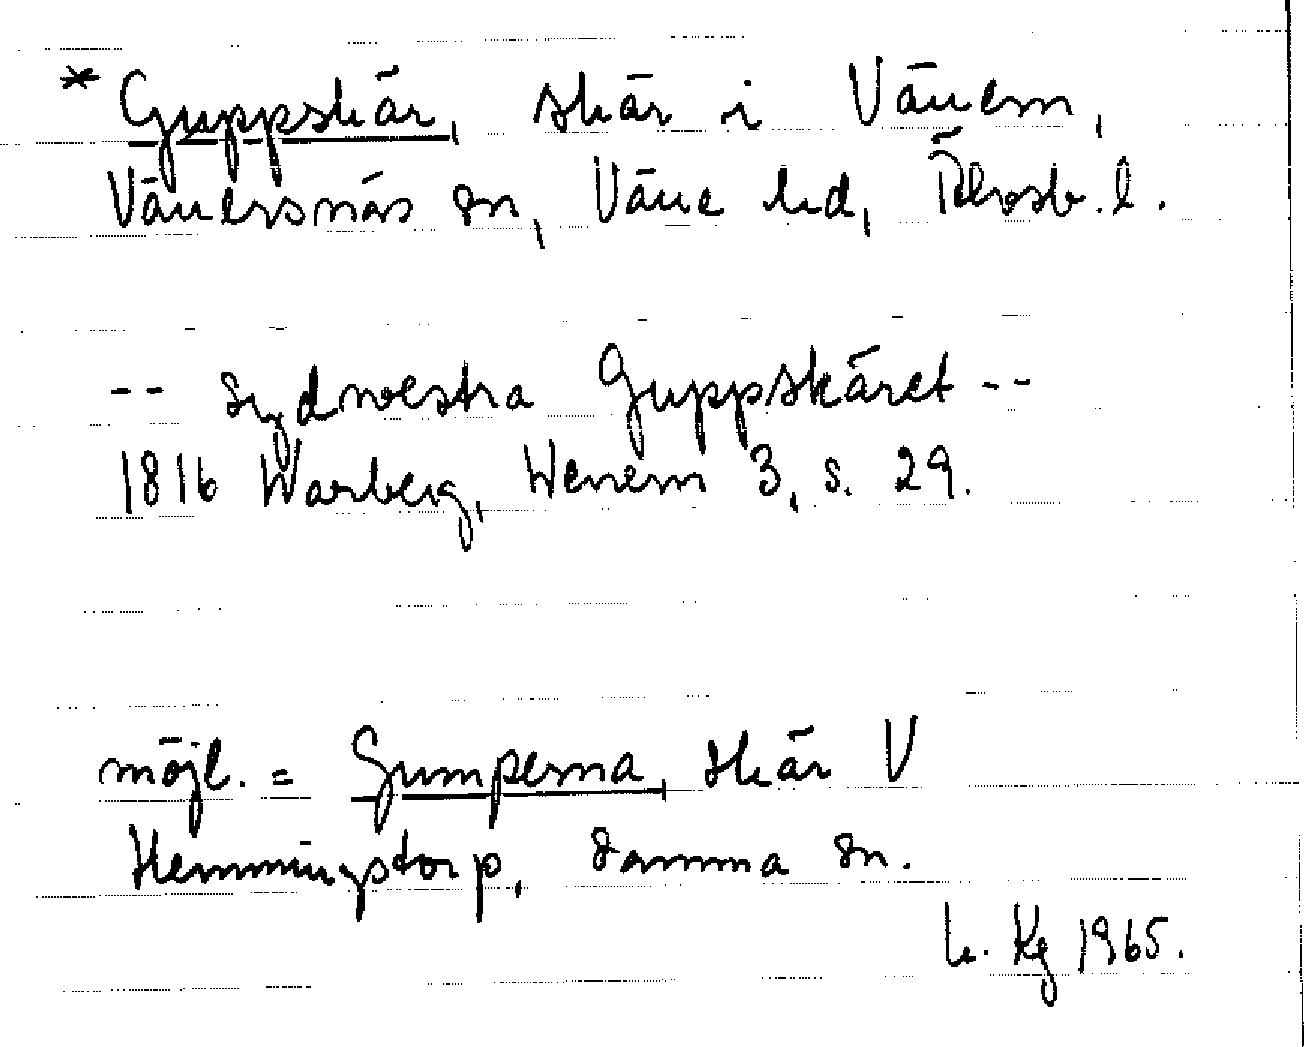 * Guppskär, skär i Vänern,
Vänersnäs sn, Väne hd, Älvsb. l.
-- Sydvestra Guppskäret --
1816 Warberg, Wenern 3, s. 29.
möjl. = Gumperna, skär V
Hemmingstorp, samma sn.
Kg 1965.